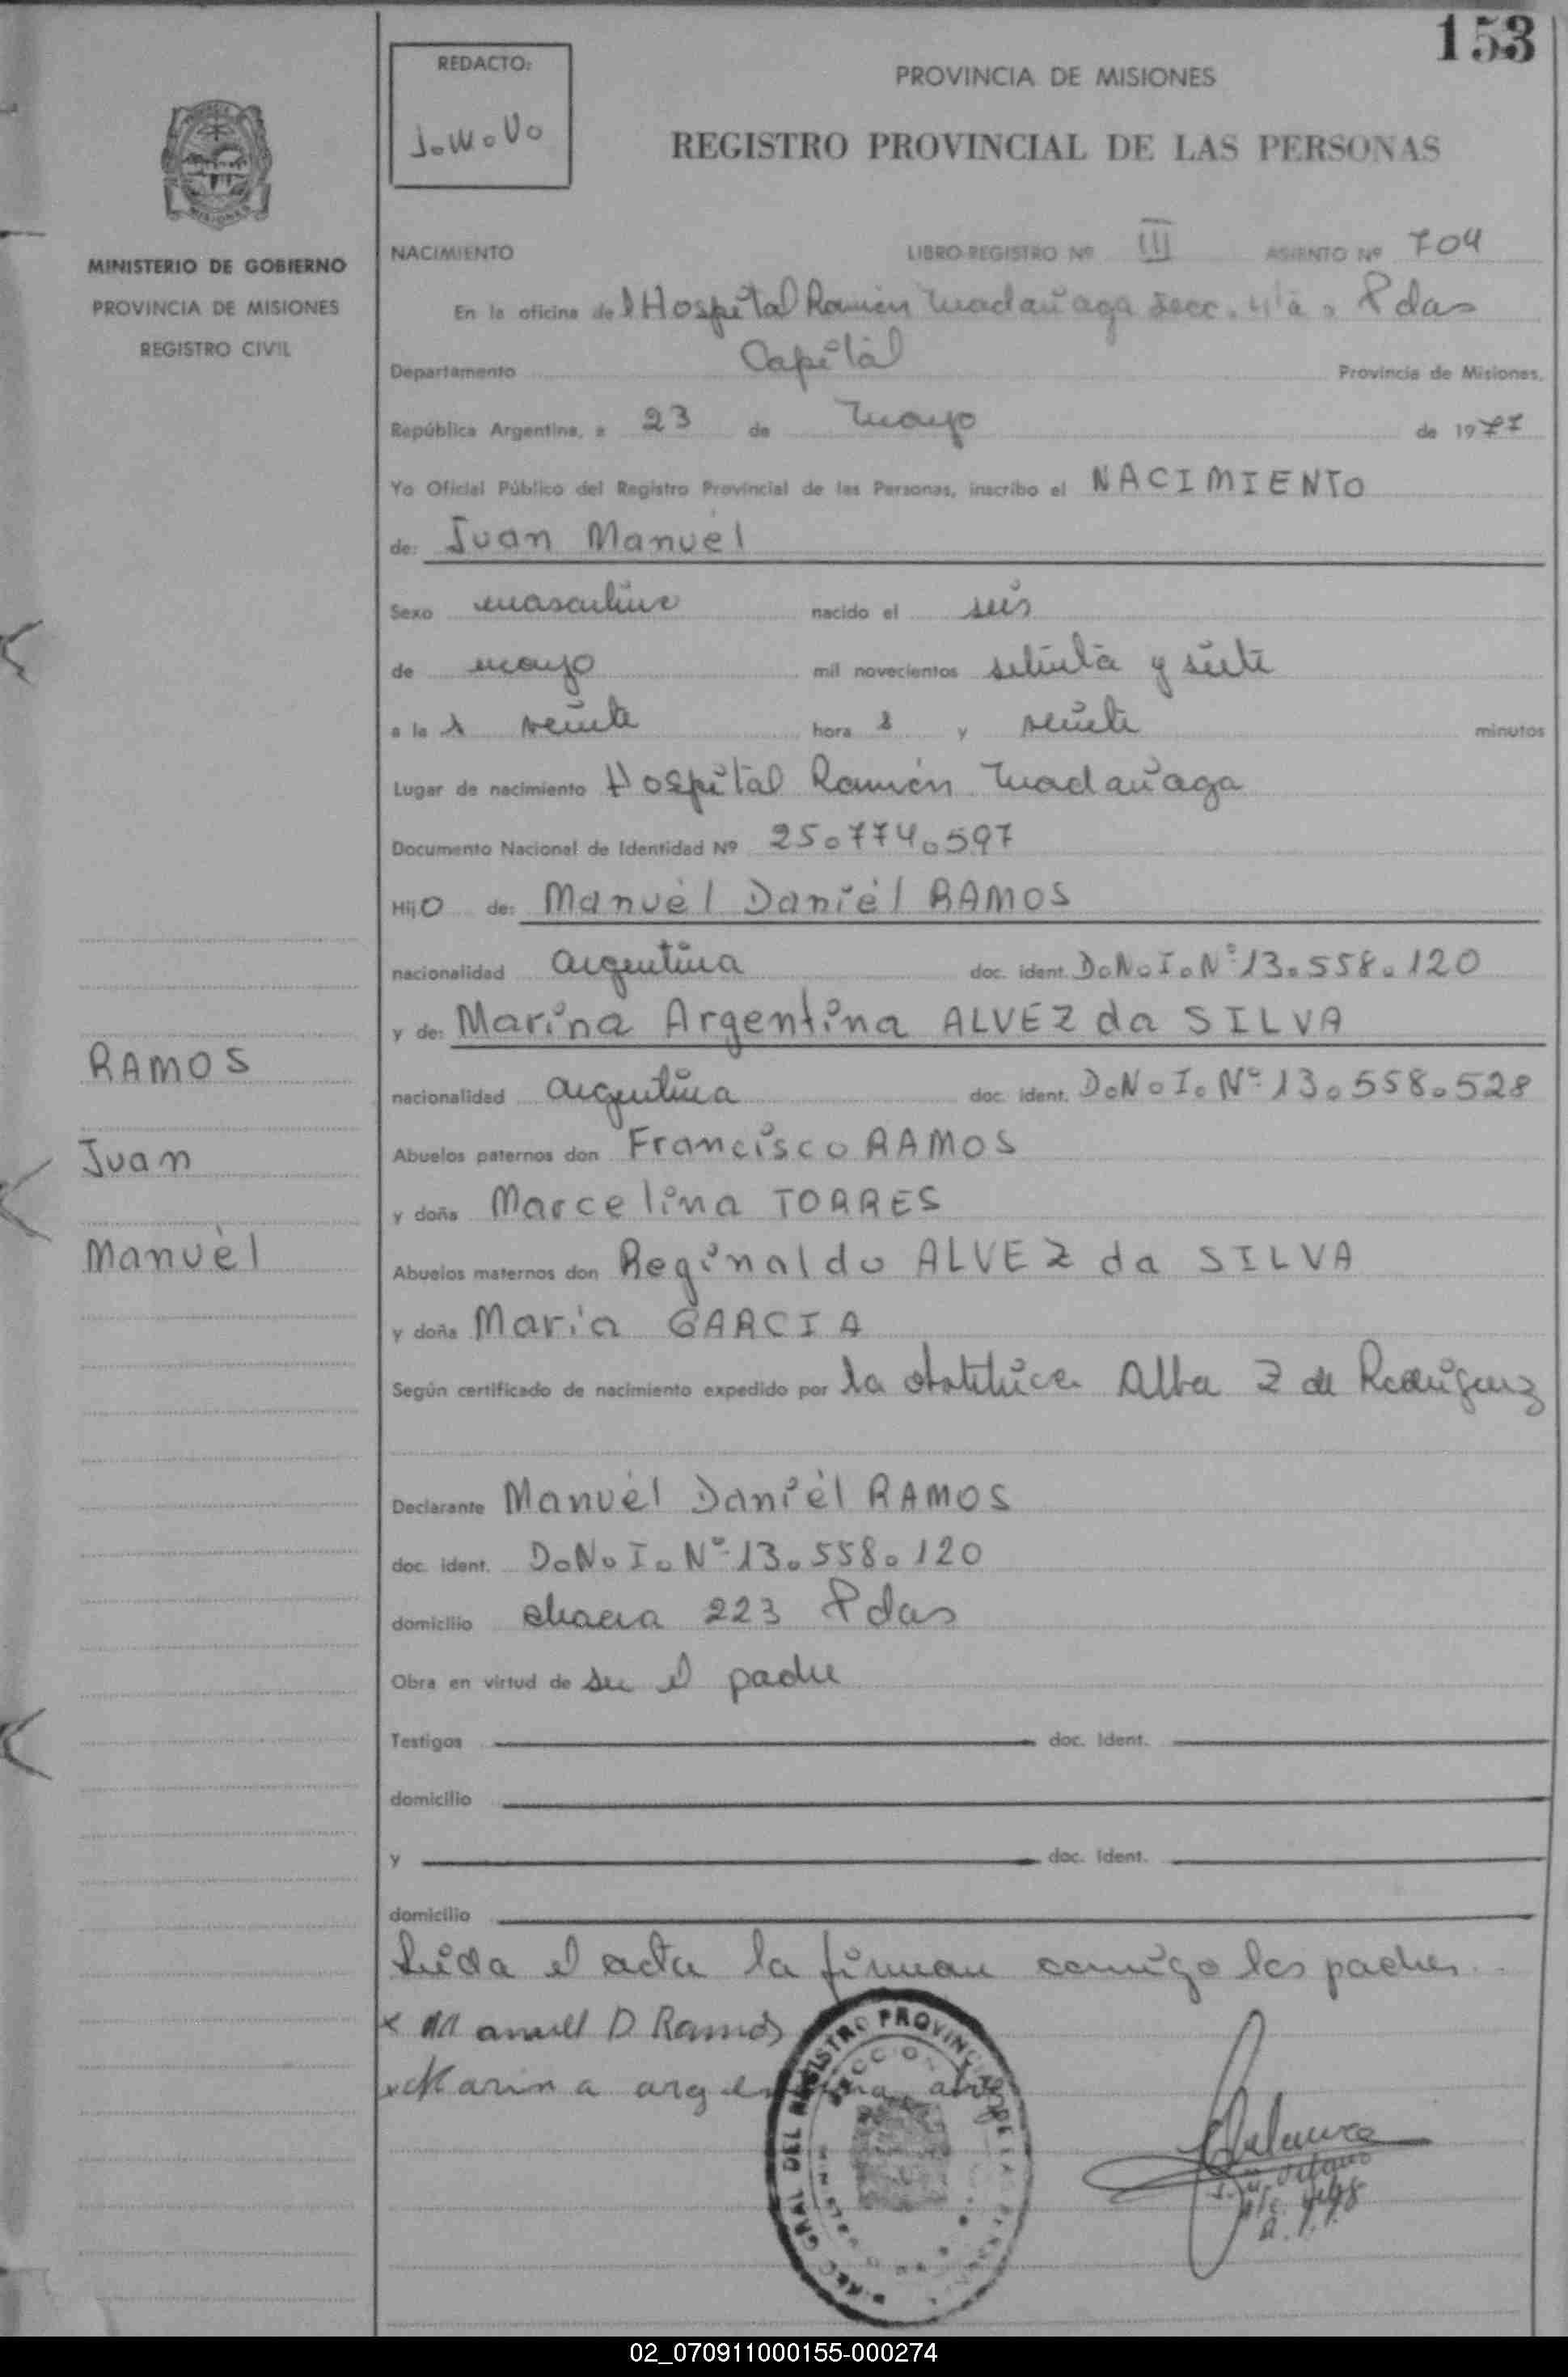 153
REDACTO:
J.M.V.
PROVINCIA DE MISIONES
REGISTRO PROVINCIAL DE LAS PERSONAS
MISIONES
MINISTERIO DE GOBIERNO
PROVINCIA DE MISIONES
REGISTRO CIVIL
NACIMIENTO LIBRO-REGISTRO Nº III ASIENTO Nº 704
En la oficina del Hospital Ramón Madariaga Secc. 4ta. Pdas
Departamento Capital Provincia de Misiones,
República Argentina, a 23 de mayo de 1977
Yo Oficial Público del Registro Provincial de las Personas, inscribo el NACIMIENTO
de: Juan Manuel
Sexo masculino nacido el seis
de mayo mil novecientos setenta y siete
a las veinte horas y veinte minutos
Lugar de nacimiento Hospital Ramón Madariaga
Documento Nacional de Identidad Nº 25.774.597
Hijo de: Manuél Daniél RAMOS
nacionalidad argentina doc. ident. D.N.I. Nº 13.558.120
y de: Marina Argentina ALVEZ da SILVA
nacionalidad argentina doc. ident. D.N.I. Nº 13.558.528
Abuelos paternos don Francisco RAMOS
y doña Marcelina TORRES
Abuelos maternos don Reginaldo ALVEZ da SILVA
y doña María GARCIA
Según certificado de nacimiento expedido por la obstétrica Alba Z de Rodríguez
Declarante Manuél Daniél RAMOS
doc. ident. D.N.I. Nº 13.558.120
domicilio chacra 223 Pdas
Obra en virtud de ser el padre
Testigos doc. Ident.
domicilio
y doc. Ident.
domicilio
Leída el acta la firman conmigo los padres
x Manuel D Ramos
x Marina argentina alvez
RAMOS
Juan
Manuél
02_070911000155-000274